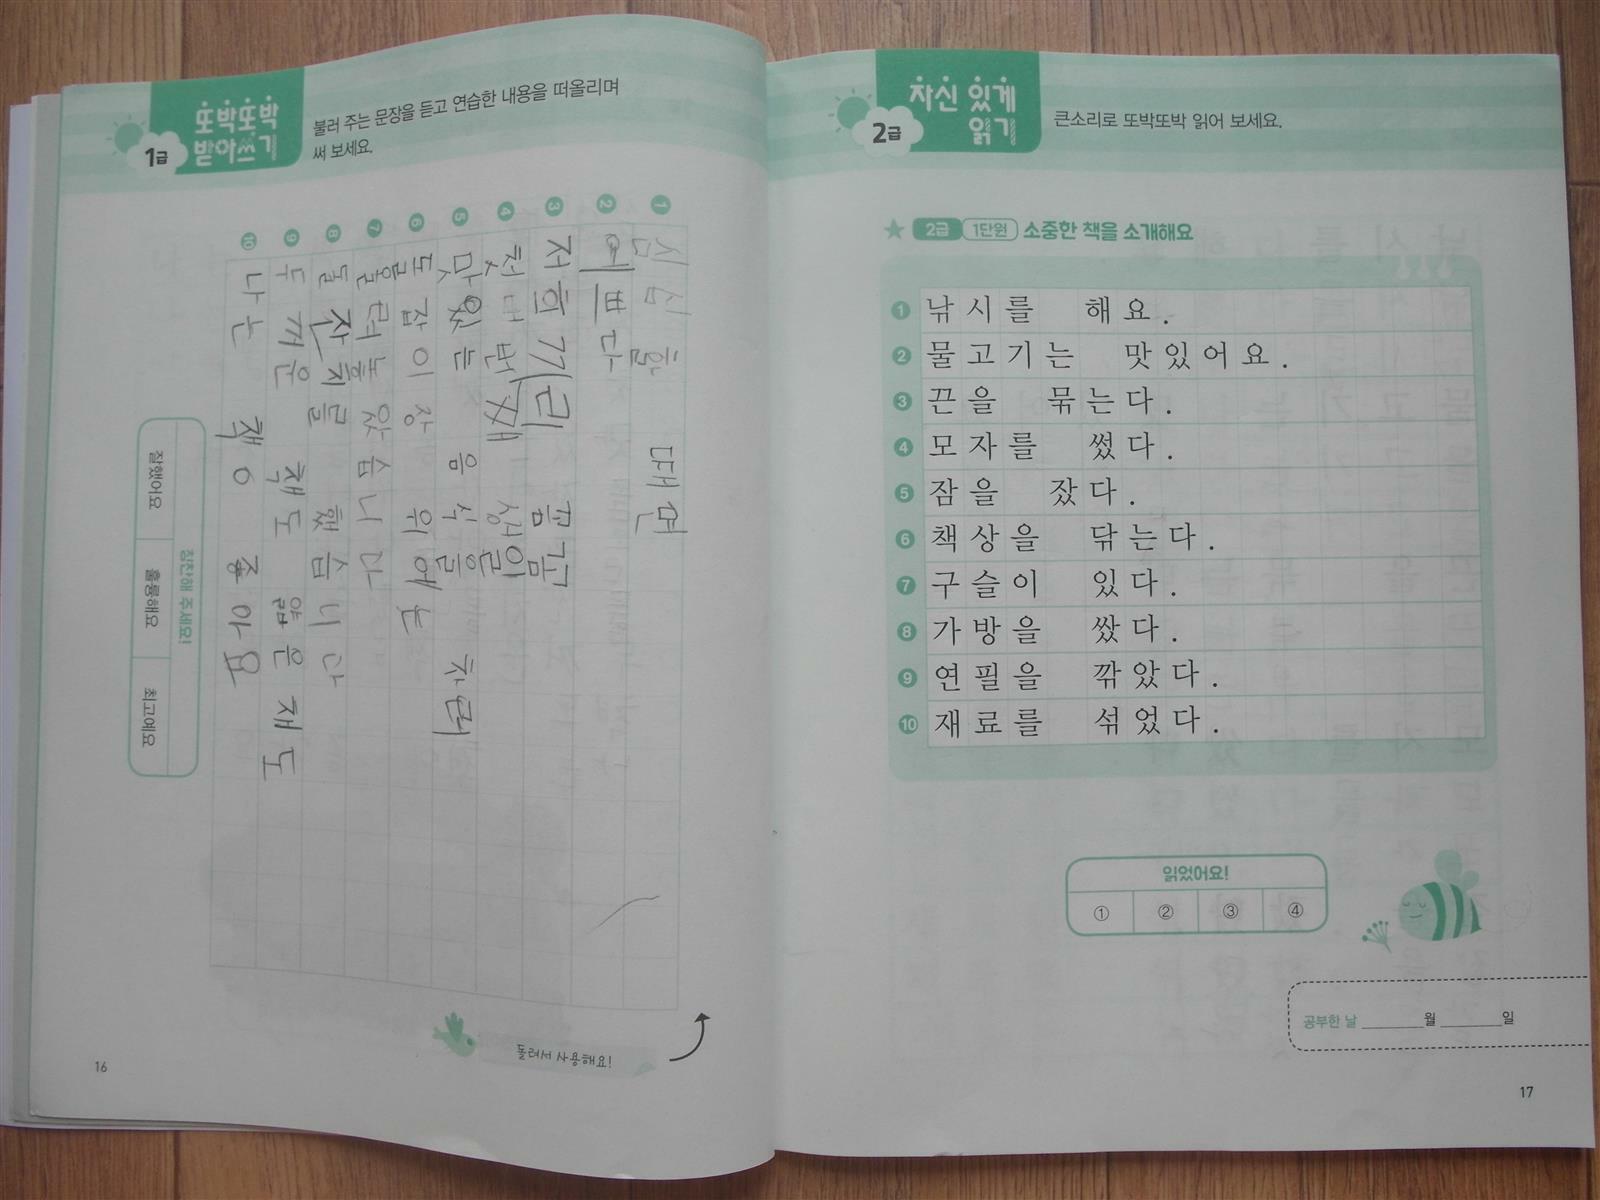 또박또박
받아쓰기
1급
불러 주는 문장을 듣고 연습한 내용을 떠올리며
써 보세요.
1 심심할 때면
2 예쁘다
3 저희끼리 꿈꿈
4 첫 번째 생일
5 맛있는 음식을 차려
6 돋잡이 상 위에는
7 올려놓았습니다
8 돌잔치를 했습니다
9 두꺼운 책도 얇은 채도
10 나는 책이 좋아요
칭찬해 주세요!
잘했어요
훌륭해요
최고예요
돌려서 사용해요!
16
자신 있게
읽기
2급
큰소리로 또박또박 읽어 보세요.
2급 1단원 소중한 책을 소개해요
1 낚시를 해요.
2 물고기는 맛있어요.
3 끈을 묶는다.
4 모자를 썼다.
5 잠을 잤다.
6 책상을 닦는다.
7 구슬이 있다.
8 가방을 쌌다.
9 연필을 깎았다.
10 재료를 섞었다.
읽었어요!
① ② ③ ④
공부한 날 월 일
17